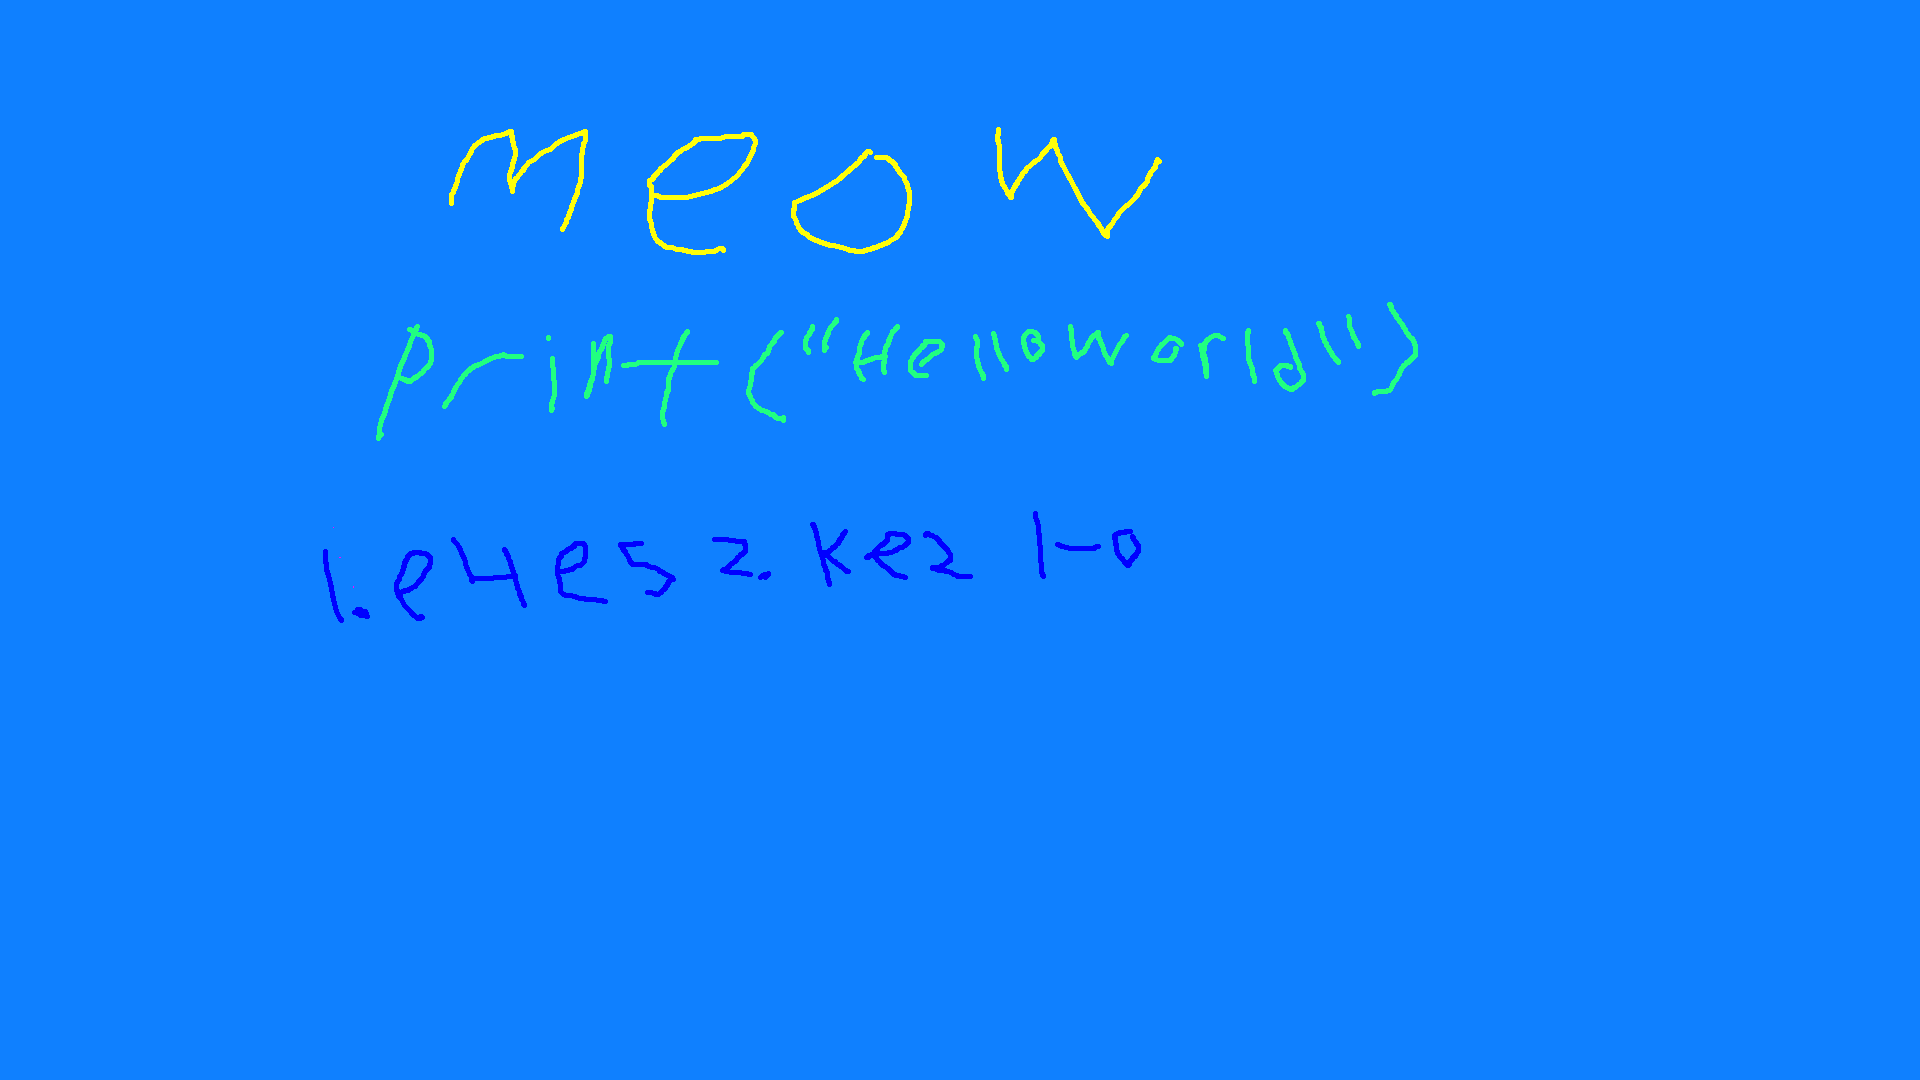 meow
print("HelloWorld")
1.e4e5 2.Ke2 1-0